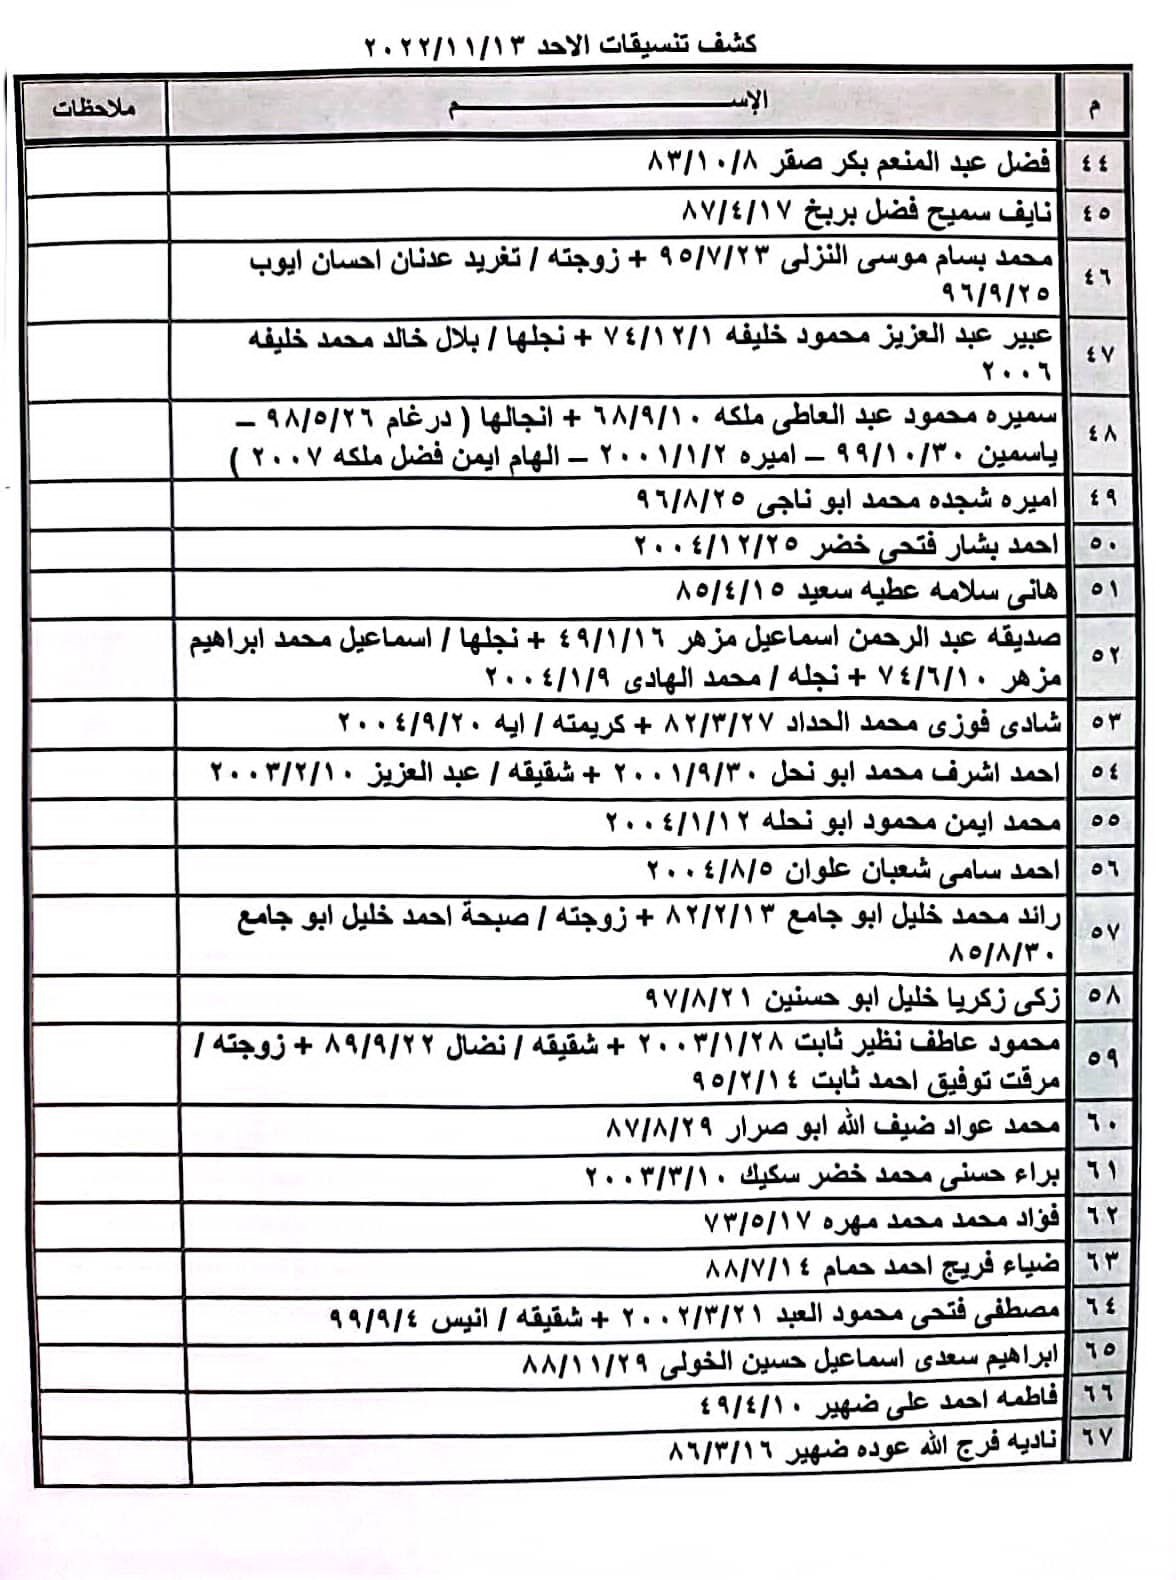 كشف تنسيقات الاحد ٢٠٢٢/١١/١٣
م الإســــــــــم ملاحظات
٤٤ فضل عبد المنعم بكر صقر ٨٣/١٠/٨
٤٥ نايف سميح فضل بربخ ٨٧/٤/١٧
٤٦ محمد بسام موسى النزلى ٩٥/٧/٢٣ + زوجته / تغريد عدنان احسان ايوب
٩٦/٩/٢٥
٤٧ عبير عبد العزيز محمود خليفه ٧٤/١٢/١ + نجلها / بلال خالد محمد خليفه
٢٠٠٦
٤٨ سميره محمود عبد العاطى ملكه ٦٨/٩/١٠ + انجالها ( درغام ٩٨/٥/٢٦ –
ياسمين ٩٩/١٠/٣٠ – اميره ٢٠٠١/١/٢ – الهام ايمن فضل ملكه ٢٠٠٧ )
٤٩ اميره شجده محمد ابو ناجى ٩٦/٨/٢٥
٥٠ احمد بشار فتحى خضر ٢٠٠٤/١٢/٢٥
٥١ هانى سلامه عطيه سعيد ٨٥/٤/١٥
٥٢ صديقه عبد الرحمن اسماعيل مزهر ٤٩/١/١٦ + نجلها / اسماعيل محمد ابراهيم
مزهر ٧٤/٦/١٠ + نجله / محمد الهادى ٢٠٠٤/١/٩
٥٣ شادى فوزى محمد الحداد ٨٢/٣/٢٧ + كريمته / ايه ٢٠٠٤/٩/٢٠
٥٤ احمد اشرف محمد ابو نحل ٢٠٠١/٩/٣٠ + شقيقه / عبد العزيز ٢٠٠٣/٢/١٠
٥٥ محمد ايمن محمود ابو نحله ٢٠٠٤/١/١٢
٥٦ احمد سامى شعبان علوان ٢٠٠٤/٨/٥
٥٧ رائد محمد خليل ابو جامع ٨٢/٢/١٣ + زوجته / صبحة احمد خليل ابو جامع
٨٥/٨/٣٠
٥٨ زكى زكريا خليل ابو حسنين ٩٧/٨/٢١
٥٩ محمود عاطف نظير ثابت ٢٠٠٣/١/٢٨ + شقيقه / نضال ٨٩/٩/٢٢ + زوجته /
مرقت توفيق احمد ثابت ٩٥/٢/١٤
٦٠ محمد عواد ضيف الله ابو صرار ٨٧/٨/٢٩
٦١ براء حسنى محمد خضر سكيك ٢٠٠٣/٣/١٠
٦٢ فؤاد محمد محمد مهره ٧٣/٥/١٧
٦٣ ضياء فريج احمد حمام ٨٨/٧/١٤
٦٤ مصطفى فتحى محمود العبد ٢٠٠٢/٣/٢١ + شقيقه / انيس ٩٩/٩/٤
٦٥ ابراهيم سعدى اسماعيل حسين الخولى ٨٨/١١/٢٩
٦٦ فاطمه احمد على ضهير ٤٩/٤/١٠
٦٧ ناديه فرج الله عوده ضهير ٨٦/٣/١٦